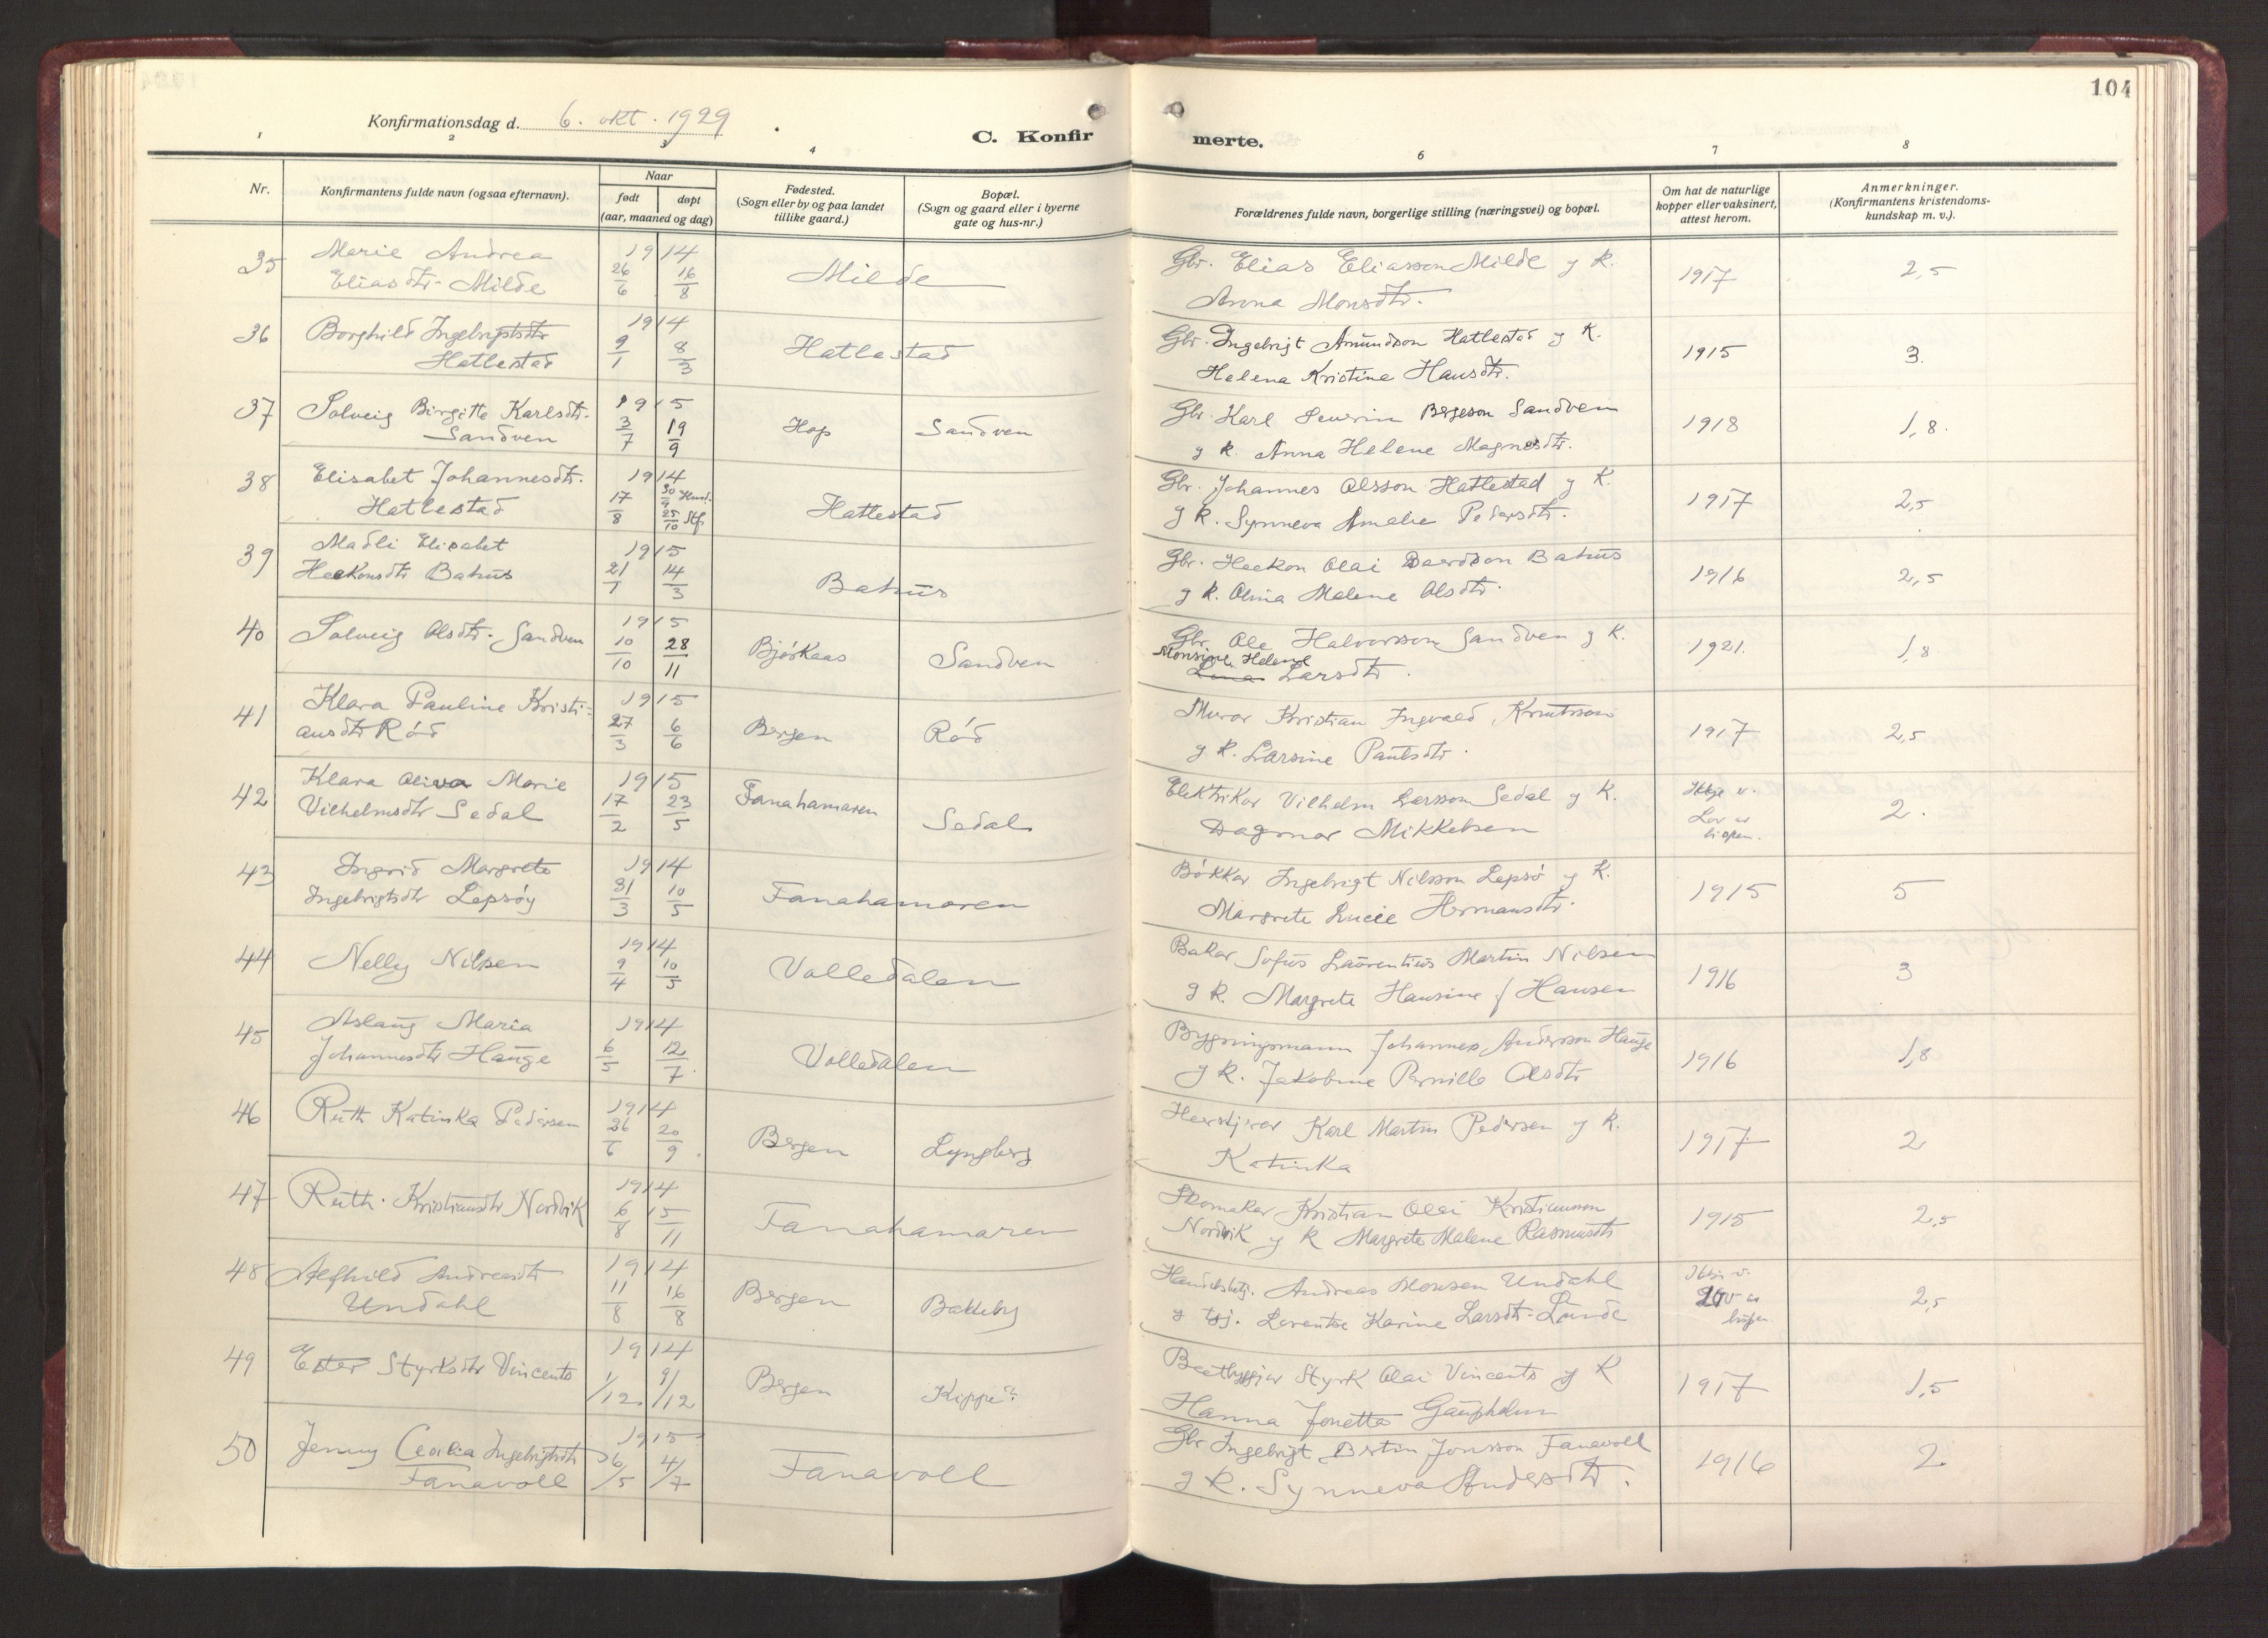 104
Konfirmationsdag d. 6. okt. 1929
C. Konfirmerte.
1 2 3 4 6 7 8
Nr.
Konfirmantens fulde navn (ogsaa efternavn).
Naar
født døpt
(aar, maaned og dag)
Fødested.
(Sogn eller by og paa landet
tillike gaard.)
Bopæl.
(Sogn og gaard eller i byerne
gate og hus-nr.)
Forældrenes fulde navn, borgerlige stilling (næringsvei) og bopæl.
Om hat de naturlige
kopper eller vaksinert,
attest herom.
Anmerkninger.
(Konfirmantens kristendoms-
kundskap m. v.).
35 Marie Andrea 1914 Gbr. Elias Eliasson Milde g k.
Eliasdtr. Milde 26/6 16/8 Milde Anna Monsdtr. 1917 2,5
36 Borghild Ingebrigtsdtr 1914 Gbr. Ingebrigt Amundson Hatlestad g k.
Hatlestad 9/1 8/3 Hatlestad Helena Kristine Hansdtr. 1915 3.
37 Solveig Birgitte Karlsdtr. 1915 Gbr. Karl Severin Bergeson Sandven
Sandven 3/7 19/9 Hop Sandven g k. Anna Helene Magnesdtr. 1918 1,8.
38 Elisabet Johannesdtr. 1914 Gbr. Johannes Olsson Hatlestad g k.
Hatlestad 17/8 30/9 25/10 Stf Hatlestad g k. Synneva Amalie Pedersdtr. 1917 2,5
39 Madli Elisabet 1915 Gbr. Haakon Olai Baardson Bahus
Haakonsdtr Bahus 21/1 14/3 Bahus g k. Olina Malene Olsdtr. 1916 2,5
40 Solveig Olsdtr. Sandven 1915 Gbr. Ole Halvorsson Sandven g k.
10/10 28/11 Bjørkaas Sandven Monsine Helene Lina Larsdtr. 1921. 1,8
41 Klara Pauline Kristi- 1915 Murar Kristian Ingvald Knutsson
ansdtr Rød 27/3 6/6 Bergen Rød g k. Larsine Paulsdtr. 1917 2,5
42 Klara Oliva Marie 1915 Elektrikar Vilhelm Larsson Sedal g k.
Vilhelmsdtr Sedal 17/2 23/5 Fanahamaren Sedal Dagmar Mikkelsen 2.
43 Ingrid Margrete 1914 Bøkkar Ingebrigt Nilsson Lepsø g k.
Ingebrigtsdtr Lepsøy 31/3 10/5 Fanahamaren Margrete Lucie Hermansdtr. 1915 5
44 Nelly Nilsen 1914 Bakar Sofus Laurentius Martin Nilsen
9/4 10/5 Volledalen g k. Margrete Hansine f Hansen 1916 3
45 Aslaug Maria 1914 Bygningsmann Johannes Andersson Hauge
Johannesdtr Hauge 6/5 12/7 Volledalen g k. Jakobine Pernille Olsdtr 1916 1,8
46 Ruth Katinka Pedersen 1914 Karl Martin Pedersen g k.
26/6 20/9 Bergen Lyngberg Katinka 1917 2
47 Ruth Kristiansdtr Nordvik 1914 Skomaker Kristian Olai Kristiansson
6/8 15/11 Fanahamaren Nordvik g k Margrete Malene Rasmusdtr 1915 2,5
48 Alfhild Andreasdtr 1914 Handelsbetj. Andreas Monsen Undahl
Undahl 11/8 16/8 Bergen Bakkeby g tgj. Lorentse Karine Larsdtr. Lunde 2,5
49 Ester Styrksdtr Vincents 1914 Baatbyggjar Styrk Olai Vincents g k
1/12. 9/12 Bergen Kippe? Hanna Jonetta Gaupholm 1917 1,5
50 Jenny Cecilia Ingebrigtsdtr 1915 Gbr Ingebrigt Bertin Jonsson Fanavoll
Fanavoll 26/5 4/7 Fanavoll g k. Synneva Andersdtr. 1916 2.